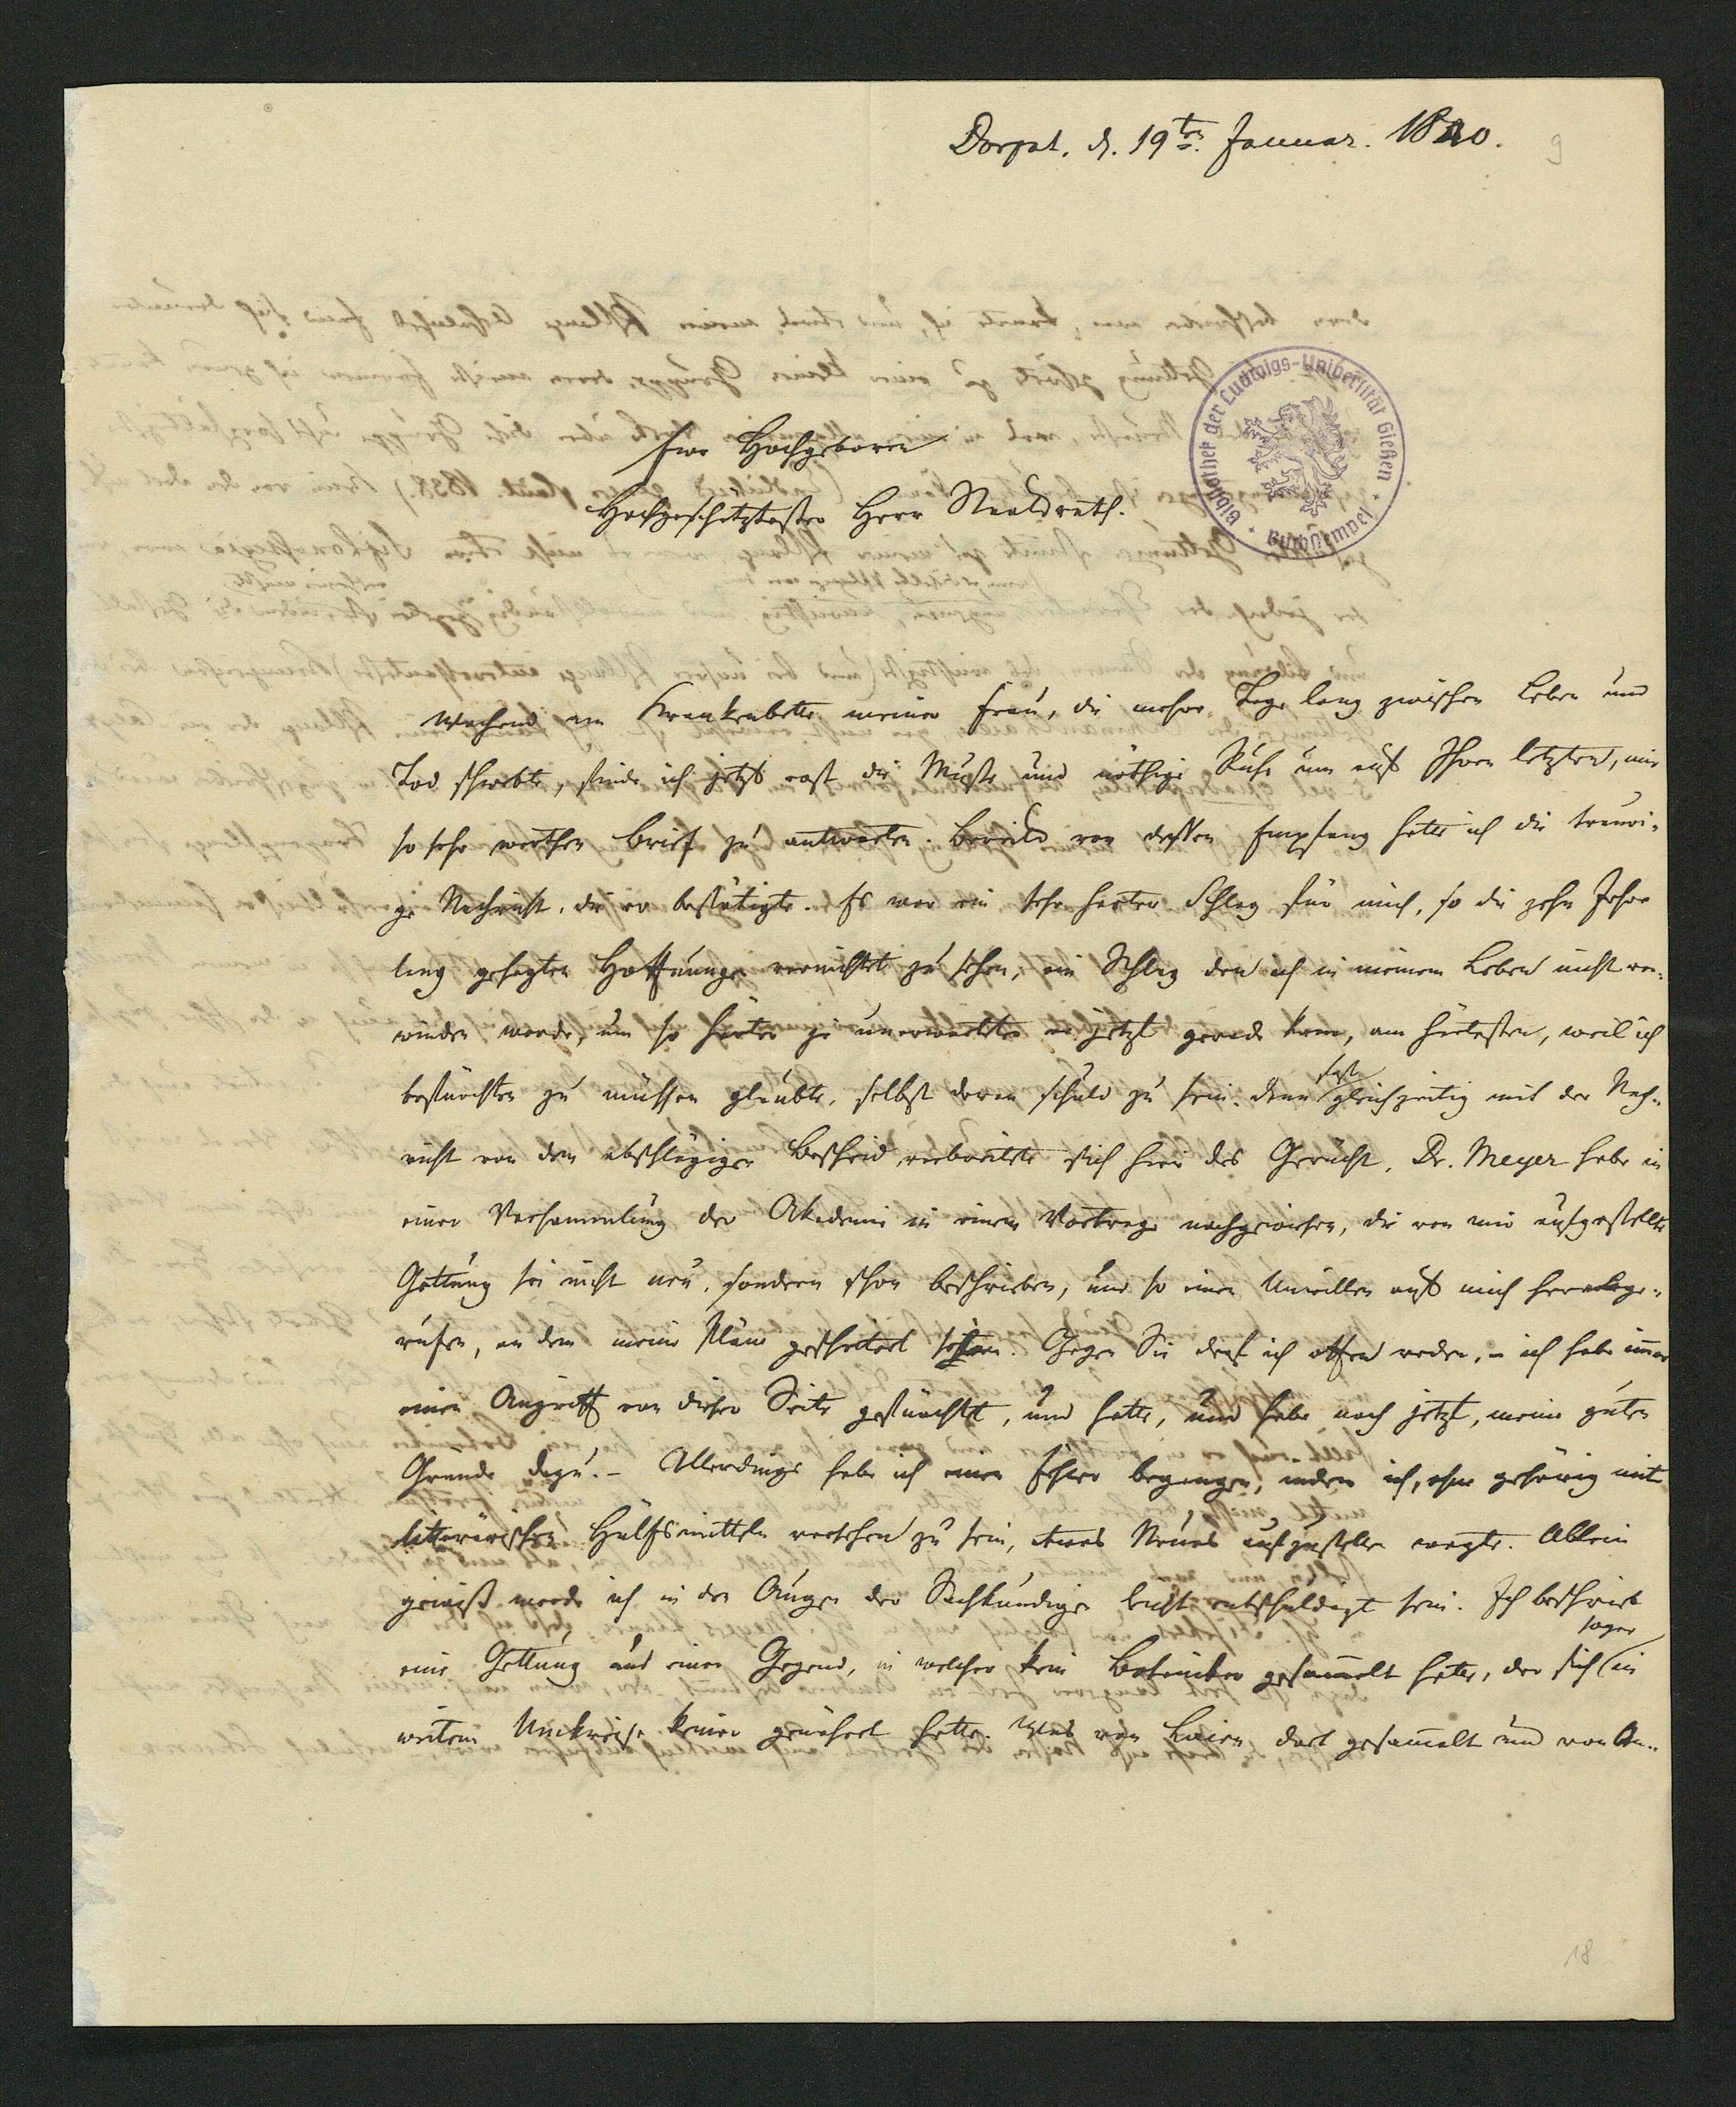 Dorpat. d. 19ten Januar. 1840.
9
Bibliothek der Ludwigs-Universität Gießen · Buchstempel ·
Eure Hochgeboren
Hochgeschätztester Herr Staatsrath.
Wachend am Krankenbette meiner Frau, die mehre Tage lang zwischen Leben und
Tod schwebte, finde ich jetzt erst die Muße und nöthige Ruhe um auf Ihren letzten, mir
so sehr werthen Brief zu antworten. Bereits vor dessen Empfang hatte ich die trauri-
ge Nachricht, die er bestätigte. Es war ein sehr harter Schlag für mich, so die zehn Jahre
lang gehegten Hoffnungen vernichtet zu sehen, ein Schlag den ich in meinem Leben nicht ver-
winden werde, um so härter je unerwarteter er jetzt gerade kam, am härtesten, weil ich
befürchten zu müssen glaubte, selbst daran schuld zu sein. Denn fast gleichzeitig mit der Nach-
richt von dem abschlägigen Bescheid verbreitete sich hier das Gerücht, Dr. Meyer habe in
einer Versammlung der Akademie in einem Vortrage nachgewiesen, die von mir aufgestellte
Gattung sei nicht neu, sondern schon beschrieben, und so einen Unwillen auf mich hervorge-
rufen, an dem meine Pläne gescheitert seien. Gegen Sie darf ich offen reden, – ich habe immer
einen Angriff von dieser Seite gefürchtet, und hatte, und habe noch jetzt, meine guten
Gründe dazu. – Allerdings habe ich einen Fehler begangen, indem ich, ohne gehörig mit
litterärischen Hülfsmitteln versehen zu sein, etwas Neues aufzustellen wagte. Allein
gewiß werde ich in den Augen der Sachkundigen leicht entschuldigt sein. Ich beschrieb
eine Gattung aus einer Gegend, in welcher kein Botaniker gesammelt hatte, der sich sogar in
weitem Umkreise keiner genähert hatte. Was von Laien dort gesammelt und von An-
18